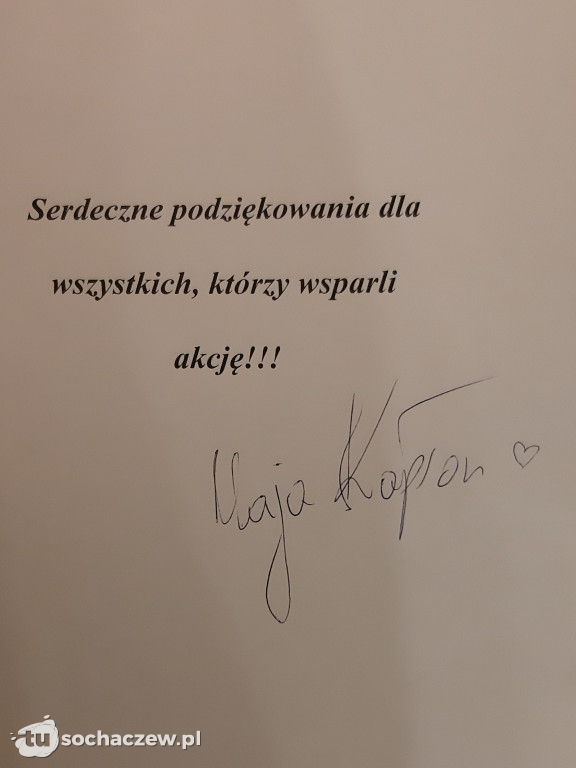 Serdeczne podziękowania dla
wszystkich, którzy wsparli
akcję!!!
Maja
tu sochaczew.pl